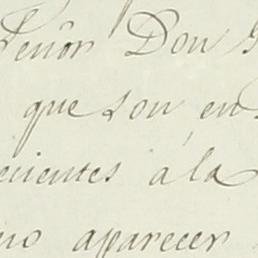 Señor Don
que son en
ecientes á la
no aparecer